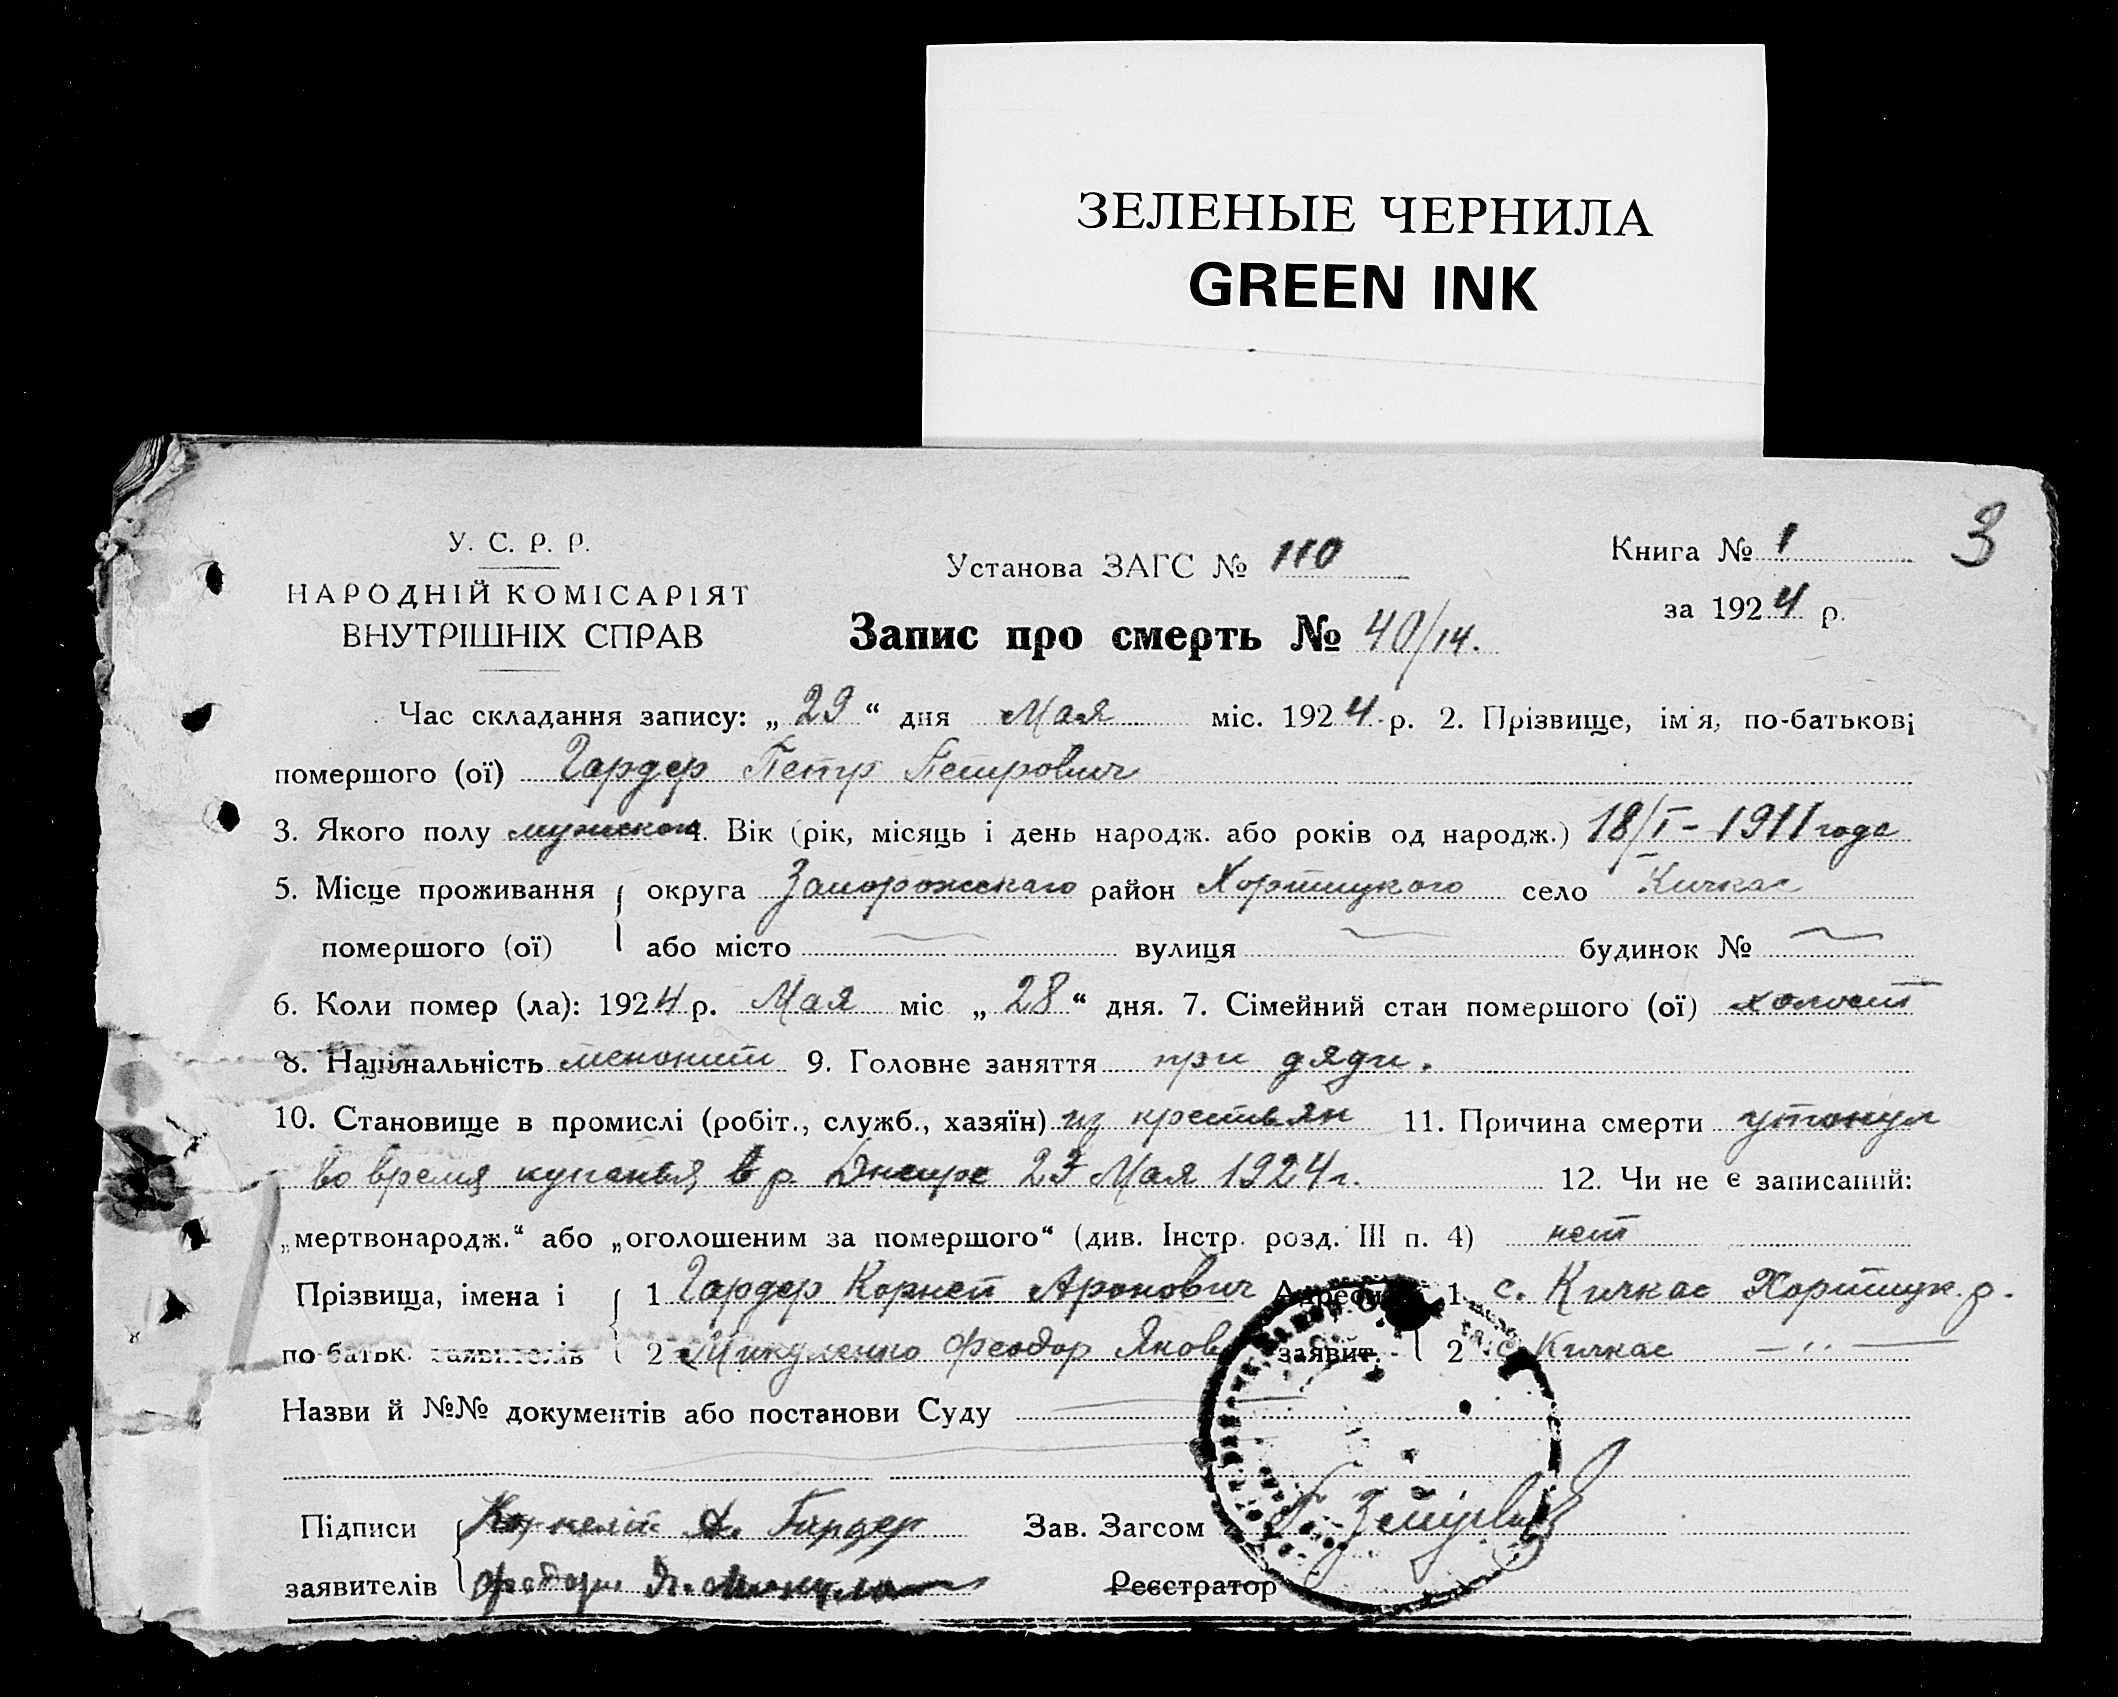 ЗЕЛЕНЫЕ ЧЕРНИЛА
GREEN INK
У. С. Р. Р.
НАРОДНІЙ КОМІСАРІЯТ
ВНУТРІШНІХ СПРАВ
Установа ЗАГС № 110
Книга № 1
3
за 1924 р.
Запис про смерть № 40/14.
Час складання запису: „29“ дня Мая міс. 1924 р. 2. Прізвище, ім'я, по-батькові
помершого (ої) Гардер Петр Петрович
3. Якого полу мужской 4. Вік (рік, місяць і день народж. або років од народж.) 18/I-1911 года
5. Місце проживання округа Запорожскаго район Хортицкого село Кичкас
помершого (ої) або місто вулиця будинок №
6. Коли помер (ла): 1924 р. Мая міс „28“ дня. 7. Сімейний стан помершого (ої) холост
8. Національність менонит 9. Головне заняття при дяди.
10. Становище в промислі (робіт., служб., хазяїн) из крестьян 11. Причина смерти утонул
во время купанья в р. Днепре 23 Мая 1924 г. 12. Чи не є записаний:
„мертвонародж.“ або „оголошеним за помершого“ (див. Інстр. розд. III п. 4) нет
Прізвища, імена і 1 Гардер Корней Аронович Адреси 1 с. Кичкас Хортицк. р.
по-батьк. заявителів 2 Микуленко Феодор Яков заявит. 2 с. Кичкас — ·· —
Назви й №№ документів або постанови Суду
Підписи Корнелій А. Гардер Зав. Загсом
заявителів Реєстратор